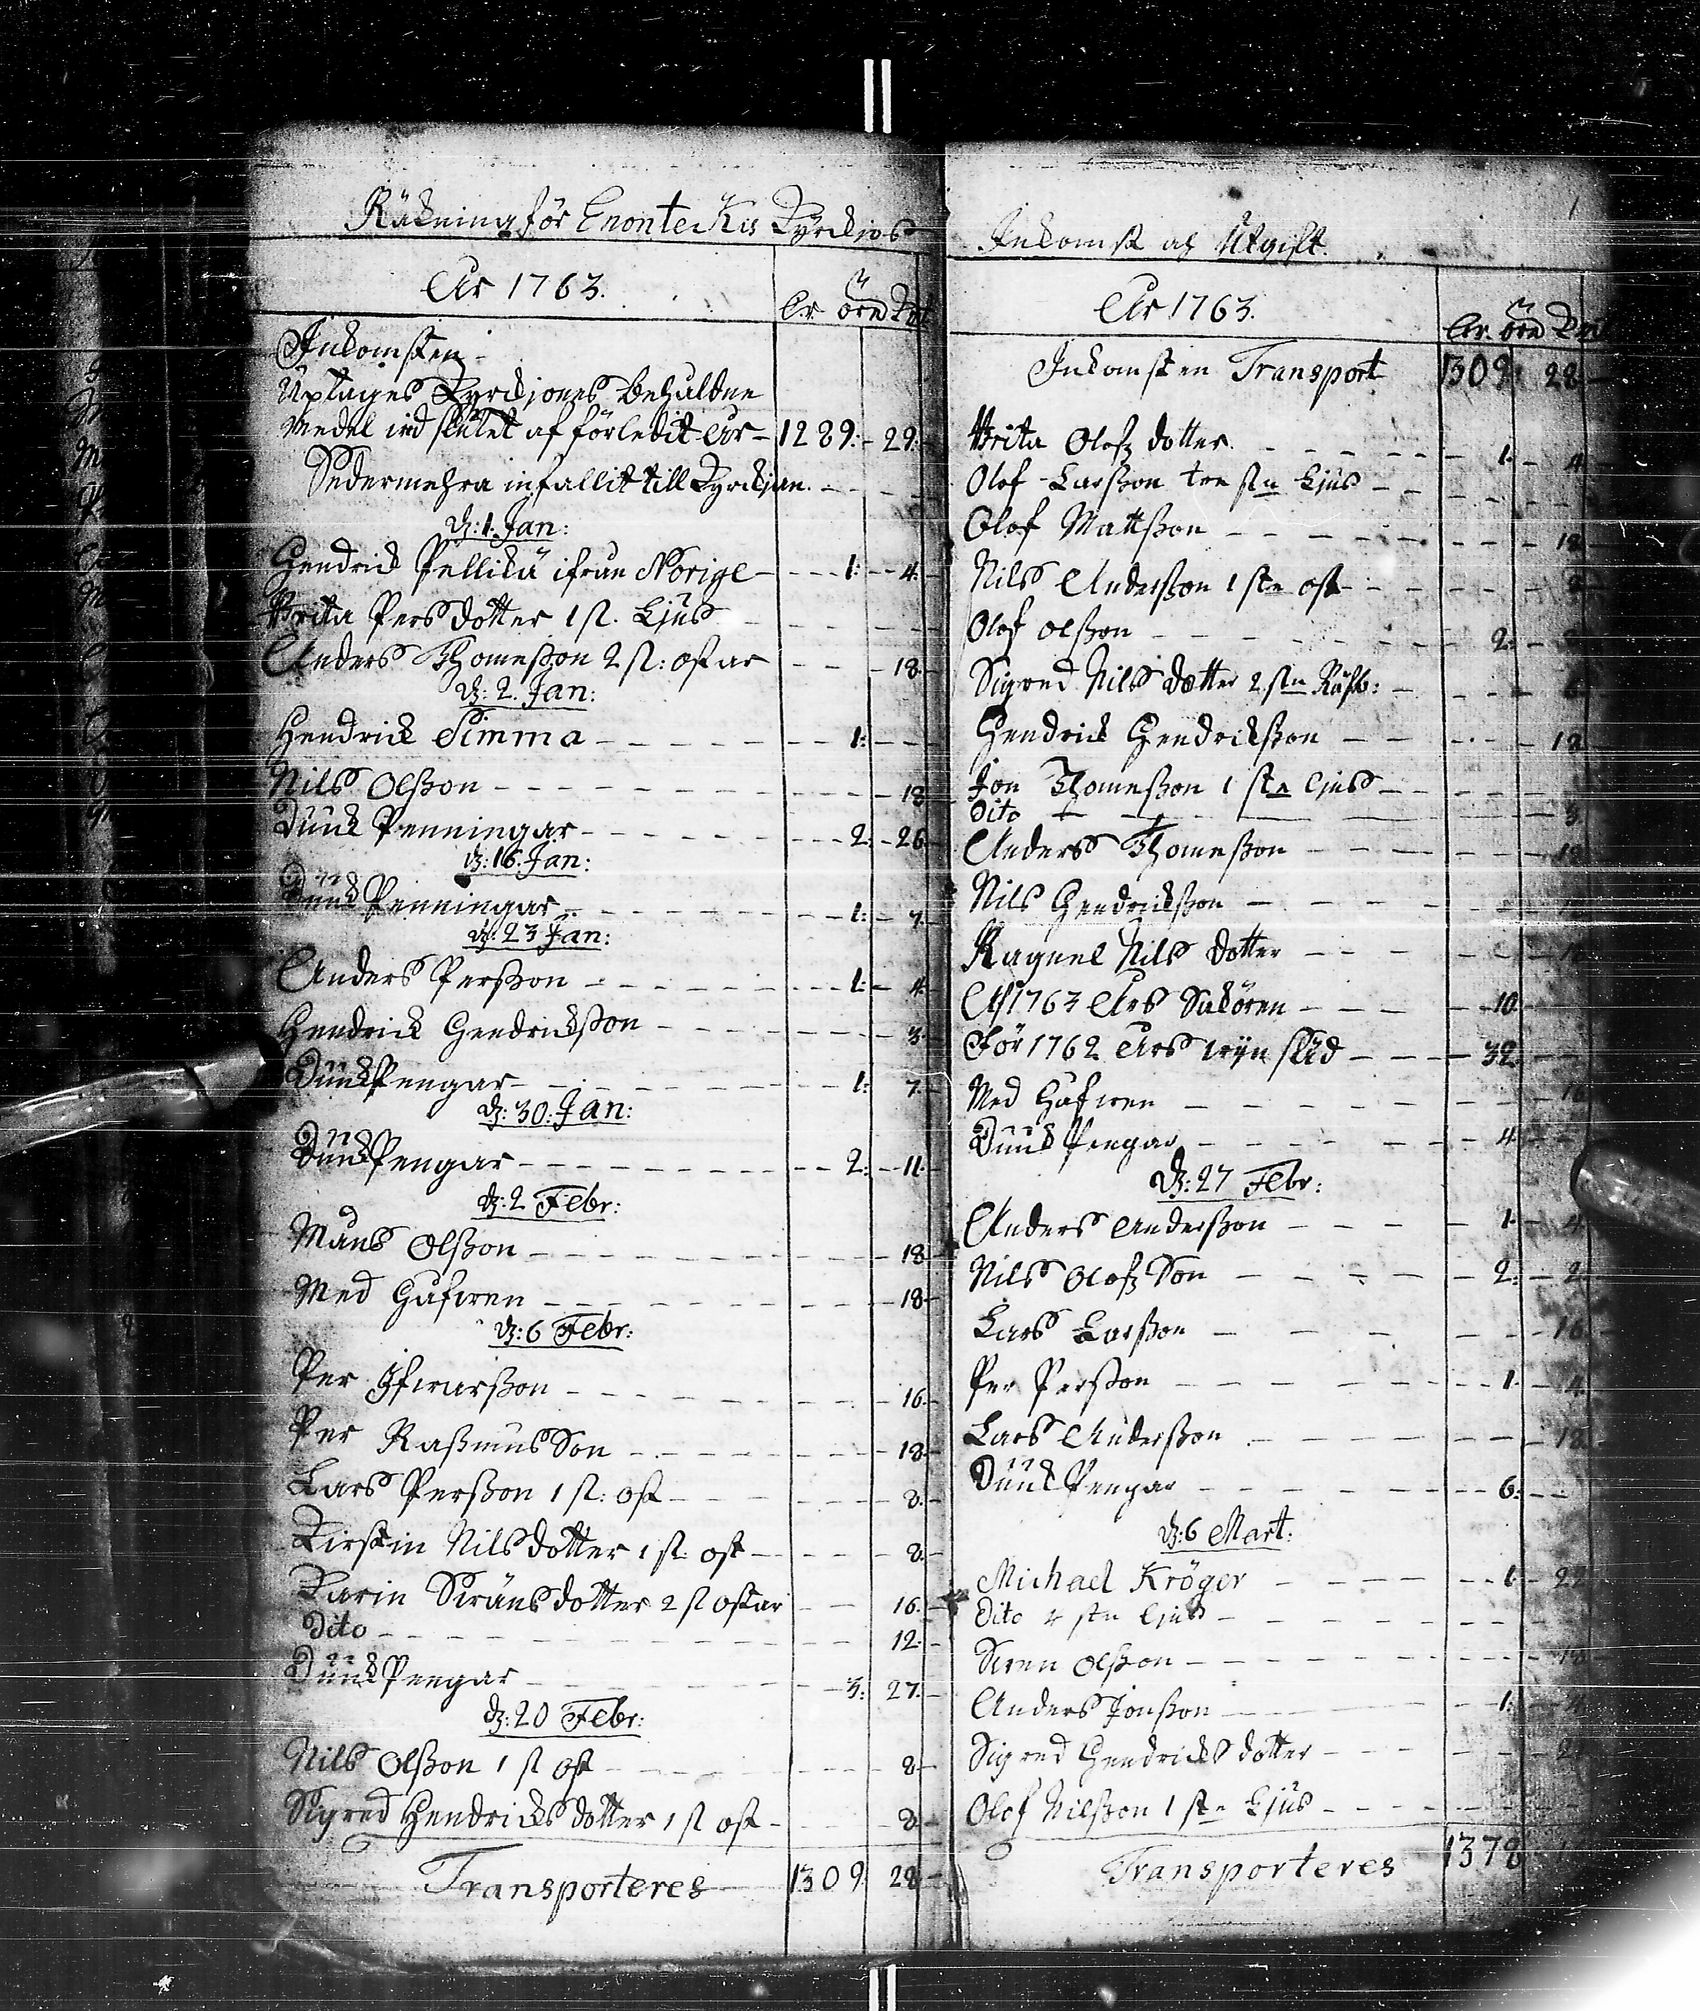 Räkning för Enonteckis Kyrckios
År 1763.
Inkomsten
Uptages Kyrckiones behåldne
Medel wid slutet af förledit År - 1289: - 29:
Sedermehra infallit till Kyrckian
d: 1. Jan:
Hendrick Pellikä ifrån Norige - 1: - 4.
Brita Persdotter 1 st. Ljus
Anders Thomeßon 2 st: ostar - 18.
d: 2. Jan:
Hendrick Simma - 1:
Nils Olßon - 18
Duuk Penningar - 2: - 26
d: 16. Jan:
Duuk Penningar - 1: - 7.
d: 23 Jan:
Anders Perßon - 1: - 4.
Hendrick Hendrickßon - 3.
Duuk Pengar - 1: 7.
d: 30. Jan:
Duuk Pengar - 2: - 11.
d: 2 Febr:
Måns Olßon - 18
Med Håfwen - 18
d: 6 Febr:
Per Ifwarßon - 16.
Per Raßmus Son - 18
Lars Perßon 1 st: ost - 8.
Kirstin Nilsdotter 1 st: ost - 8.
Karin Simånsdotter 2 st ostar - 16.
Dito - 12.
Duuk Pengar - 3: 27.
d: 20 Febr:
Nils Olßon 1 st ost - 8
Sigred Hendricks dotter 1 st ost - 8.
Transporteres 1309 28
Inkomst och Utgift.
År 1763.
Inkomsten Transport 1309: 28
Brita Olofz dotter - 1: 4
Olof Larßon tre st Ljus
Olof Mattßon - 18
Nils Anderßon 1 st ost - 8
Olof Olßon - 2: 8
Sigred Nils dotter 2 st - 6
Hendrick Hendrickßon - 18
Jon Thomeßon 1 st ljus
Dito - 3
Anders Thomeßon - 18
Nils Hendrickßon
Ragnel Nils dotter - 18
Af 1763 Års Sakören - 10
För 1762 Års - 32
Med Håfwen - 16
Duuk Pengar - 4
d: 27 Febr:
Anders Anderßon - 1 - 4
Nils Olofz Son - 2: - 2
Lars Larßon - 16
Per Perßon - 1: - 4
Lars Anderßon - 18
Duuk Pengar - 6:
d: 6 Mart:
Michael Kröger - 1:
Dito st ljus
Swen Olßon - 18
Anders Jonßon - 1: 4
Sigred Hendricks dotter
Olof Nilßon 1 st Ljus
Transporteres 1378